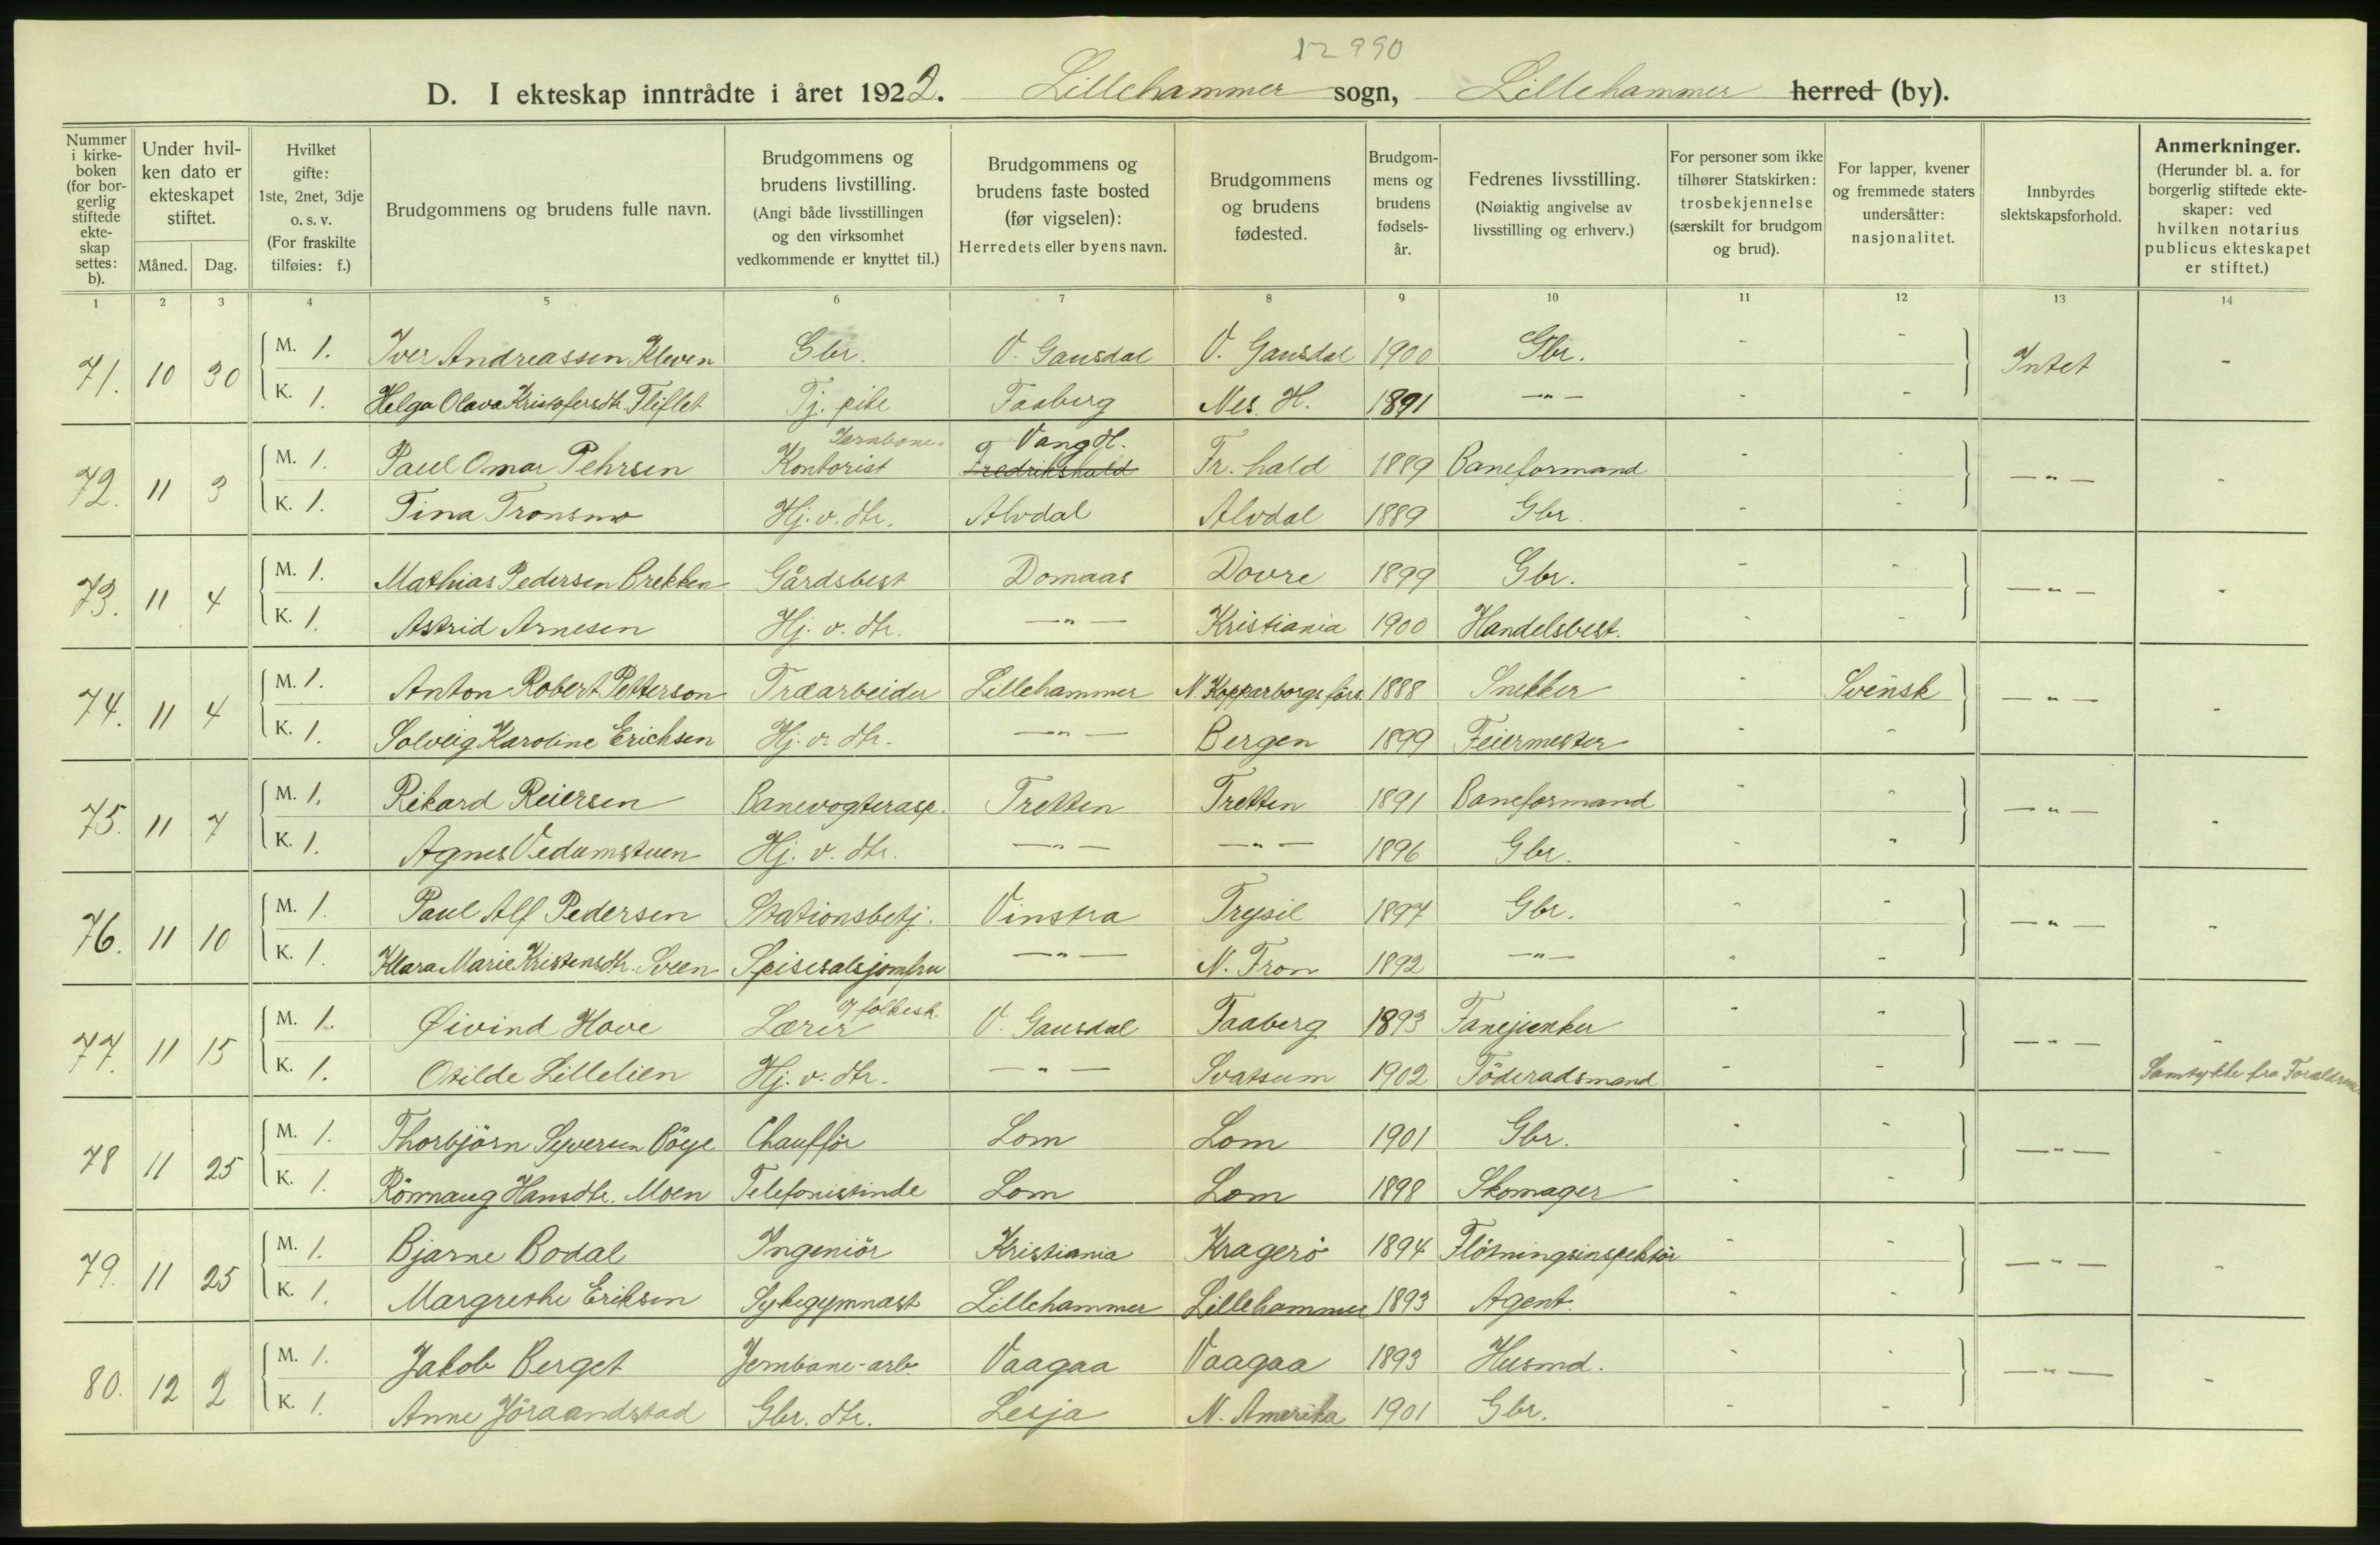 12990
D. I ekteskap inntrådte i året 1922. Lillehammer sogn, Lillehammer herred (by).
Nummer i kirkeboken (for borgerlig stiftede ekteskap settes: b).
Under hvilken dato er ekteskapet stiftet.
Måned. Dag.
Hvilket gifte: 1ste, 2net, 3dje o. s. v. (For fraskilte tilføies: f.)
Brudgommens og brudens fulle navn.
Brudgommens og brudens livstilling. (Angi både livsstillingen og den virksomhet vedkommende er knyttet til.)
Brudgommens og brudens faste bosted (før vigselen): Herredets eller byens navn.
Brudgommens og brudens fødested.
Brudgommens og brudens fødselsår.
Fedrenes livsstilling. (Nøiaktig angivelse av livsstilling og erhverv.)
For personer som ikke tilhører Statskirken: trosbekjennelse (særskilt for brudgom og brud).
For lapper, kvener og fremmede staters undersåtter: nasjonalitet.
Innbyrdes slektskapsforhold.
Anmerkninger. (Herunder bl. a. for borgerlig stiftede ekteskaper: ved hvilken notarius publicus ekteskapet er stiftet.)
1 2 3 4 5 6 7 8 9 10 11 12 13 14
71. 10 30 M. 1. Iver Andreassen Kleven Gbr. V. Gausdal V. Gausdal 1900 Gbr. - - Intet -
K. 1. Helga Olava Kristofersdtr. Fliflet Tj. pike Faaberg Nes. H. 1891 —"— - -
Jernbane- Vang H.
72. 11 3 M. 1. Paul Omar Pehrsen Kontorist Fredrikshald Fr. hald 1889 Baneformand - - —"— -
K. 1. Tina Tronsmo Hj. v. dtr. Alvdal Alvdal 1889 Gbr. - -
73. 11 4 M. 1. Mathias Pedersen Brekken Gårdsbest Domaas Dovre 1899 Gbr. - - —"— -
K. 1. Astrid Arnesen Hj. v. dtr. —"— Kristiania 1900 Handelsbest. - -
74. 11 4 M. 1. Anton Robert Petterson Træarbeider Lillehammer N. Kopparborgs förs. 1888 Snekker - Svensk —"— -
K. 1. Solveig Karoline Erichsen Hj. v. dtr. —"— Bergen 1899 Feiermester - -
75. 11 7 M. 1. Rikard Reiersen Banevogterasp. Tretten Tretten 1891 Baneformand - - —"— -
K. 1. Agnes Vedumstuen Hj. v. dtr. —"— —"— 1896 Gbr. - -
76. 11 10 M. 1. Paul Alf Pedersen Stationsbetj. Vinstra Trysil 1897 Gbr. - - —"— -
K. 1. Klara Marie Kristensdtr. Sveen Spisesalsjomfru —"— N. Fron 1892 —"— - -
v/ folkesk.
77. 11 15 M. 1. Øivind Hove Lærer V. Gausdal Faaberg 1893 Fanejunker - - —"— -
K. 1. Otilde Lillelien Hj. v. dtr. —"— Svatsum 1902 Föderadsmand - - Samtykke fra Forældrene
78 11 25 M. 1. Thorbjörn Syversen Böye Chafför Lom Lom 1901 Gbr. - - —"— -
K. 1. Rönnaug Hansdtr. Moen Telefonistinde Lom Lom 1898 Skomager - -
79. 11 25 M. 1. Bjarne Bodal Ingeniör Kristiania Kragerö 1894 Flötningsinspektör - - —"— -
K. 1. Margrethe Eriksen Sykegymnast Lillehammer Lillehammer 1893 Agent. - -
80. 12 2 M. 1. Jakob Berget Jernbane-arb. Vaagaa Vaagaa 1893 Husmd. - - —"— -
K. 1. Anne Jöraandstad Gbr. dtr. Lesja N. Amerika 1901 Gbr. - -